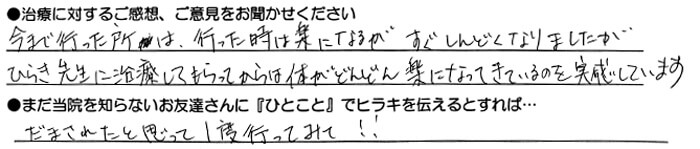 ●治療に対するご感想、ご意見をお聞かせください
今まで行った所は、行った時は楽になるが すぐしんどくなりましたが
ひらき先生に治療してもらってからは体がどんどん楽になってきているのを実感しています
●まだ当院を知らないお友達さんに『ひとこと』でヒラキを伝えるとすれば…
だまされたと思って1度行ってみて!!